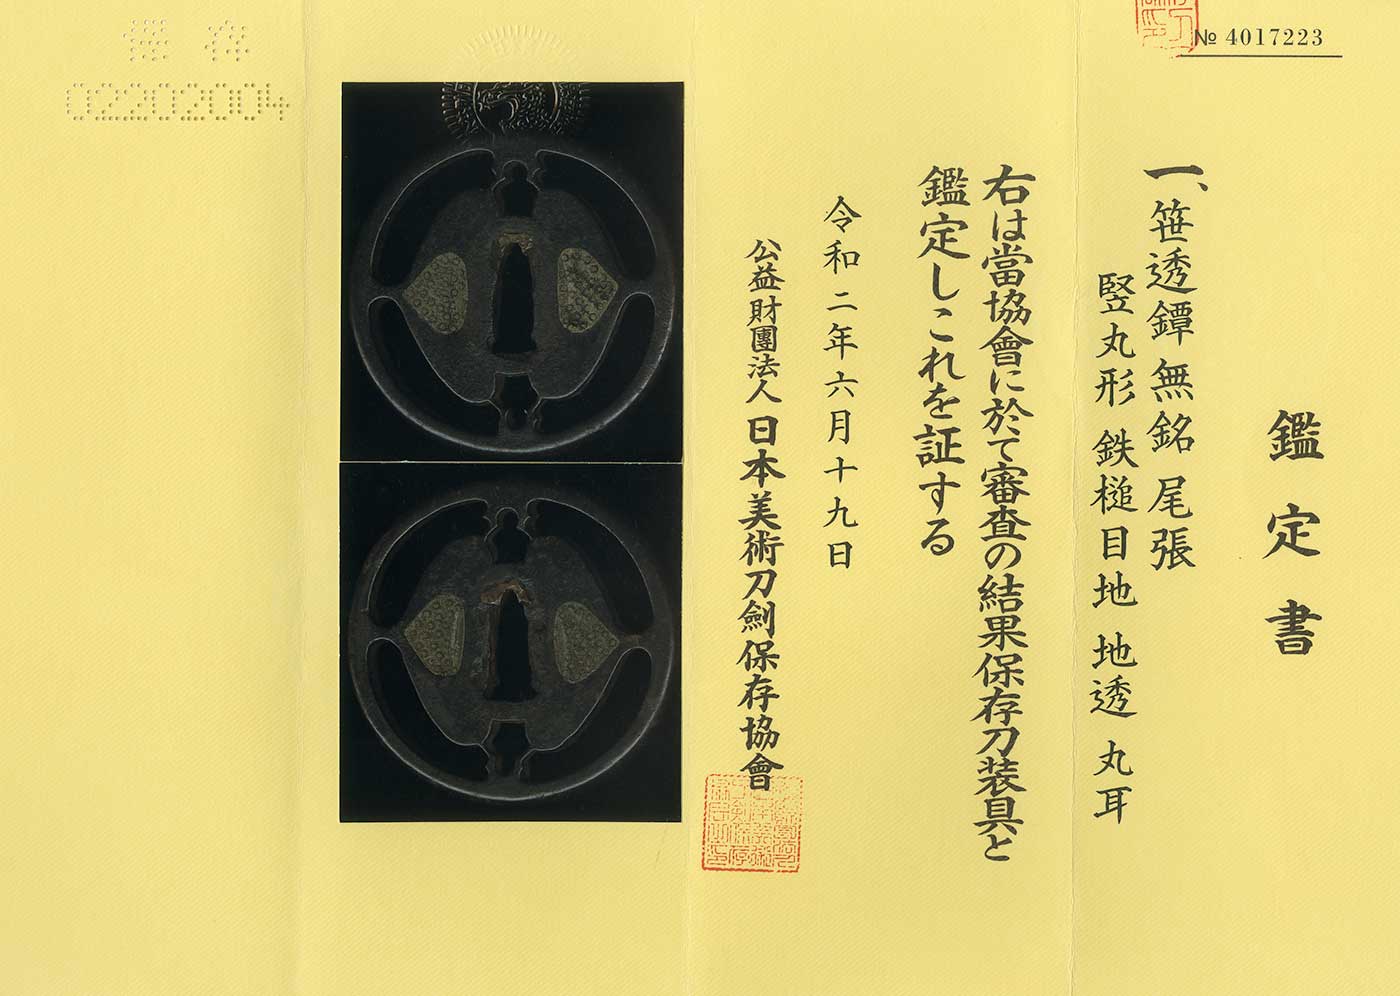 № 4017223
鑑定書
一、笹透鐔 無銘 尾張
竪丸形 鉄槌目地 地透 丸耳
右は當協會に於て審査の結果保存刀装具と
鑑定しこれを証する
令和二年六月十九日
公益財團法人 日本美術刀劍保存協會
保存
02202004